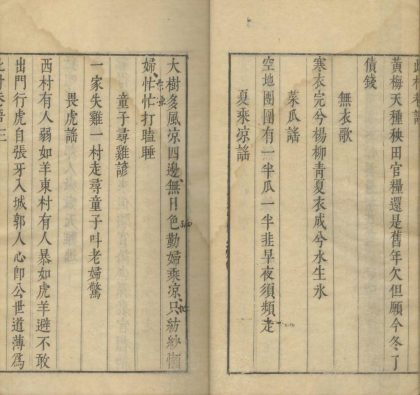 黃梅天種秧田官糧還是舊年欠但願今冬了
債錢
無衣歌
寒衣完兮楊柳青夏衣成兮水生氷
菜瓜謠
空地團團有一半瓜一半韭早夜須頻走
夏乘涼謠
大樹多風凉四邊無日色勤婦乘凉只紡紗懶
婦忙忙打瞌睡
童子尋雞諺
一家失雞一村走尋童子叫老婦驚
畏虎謠
西村有人弱如羊東村有人暴如虎羊避不敢
出門行虎自張牙入城郭人心卽公世道薄爲